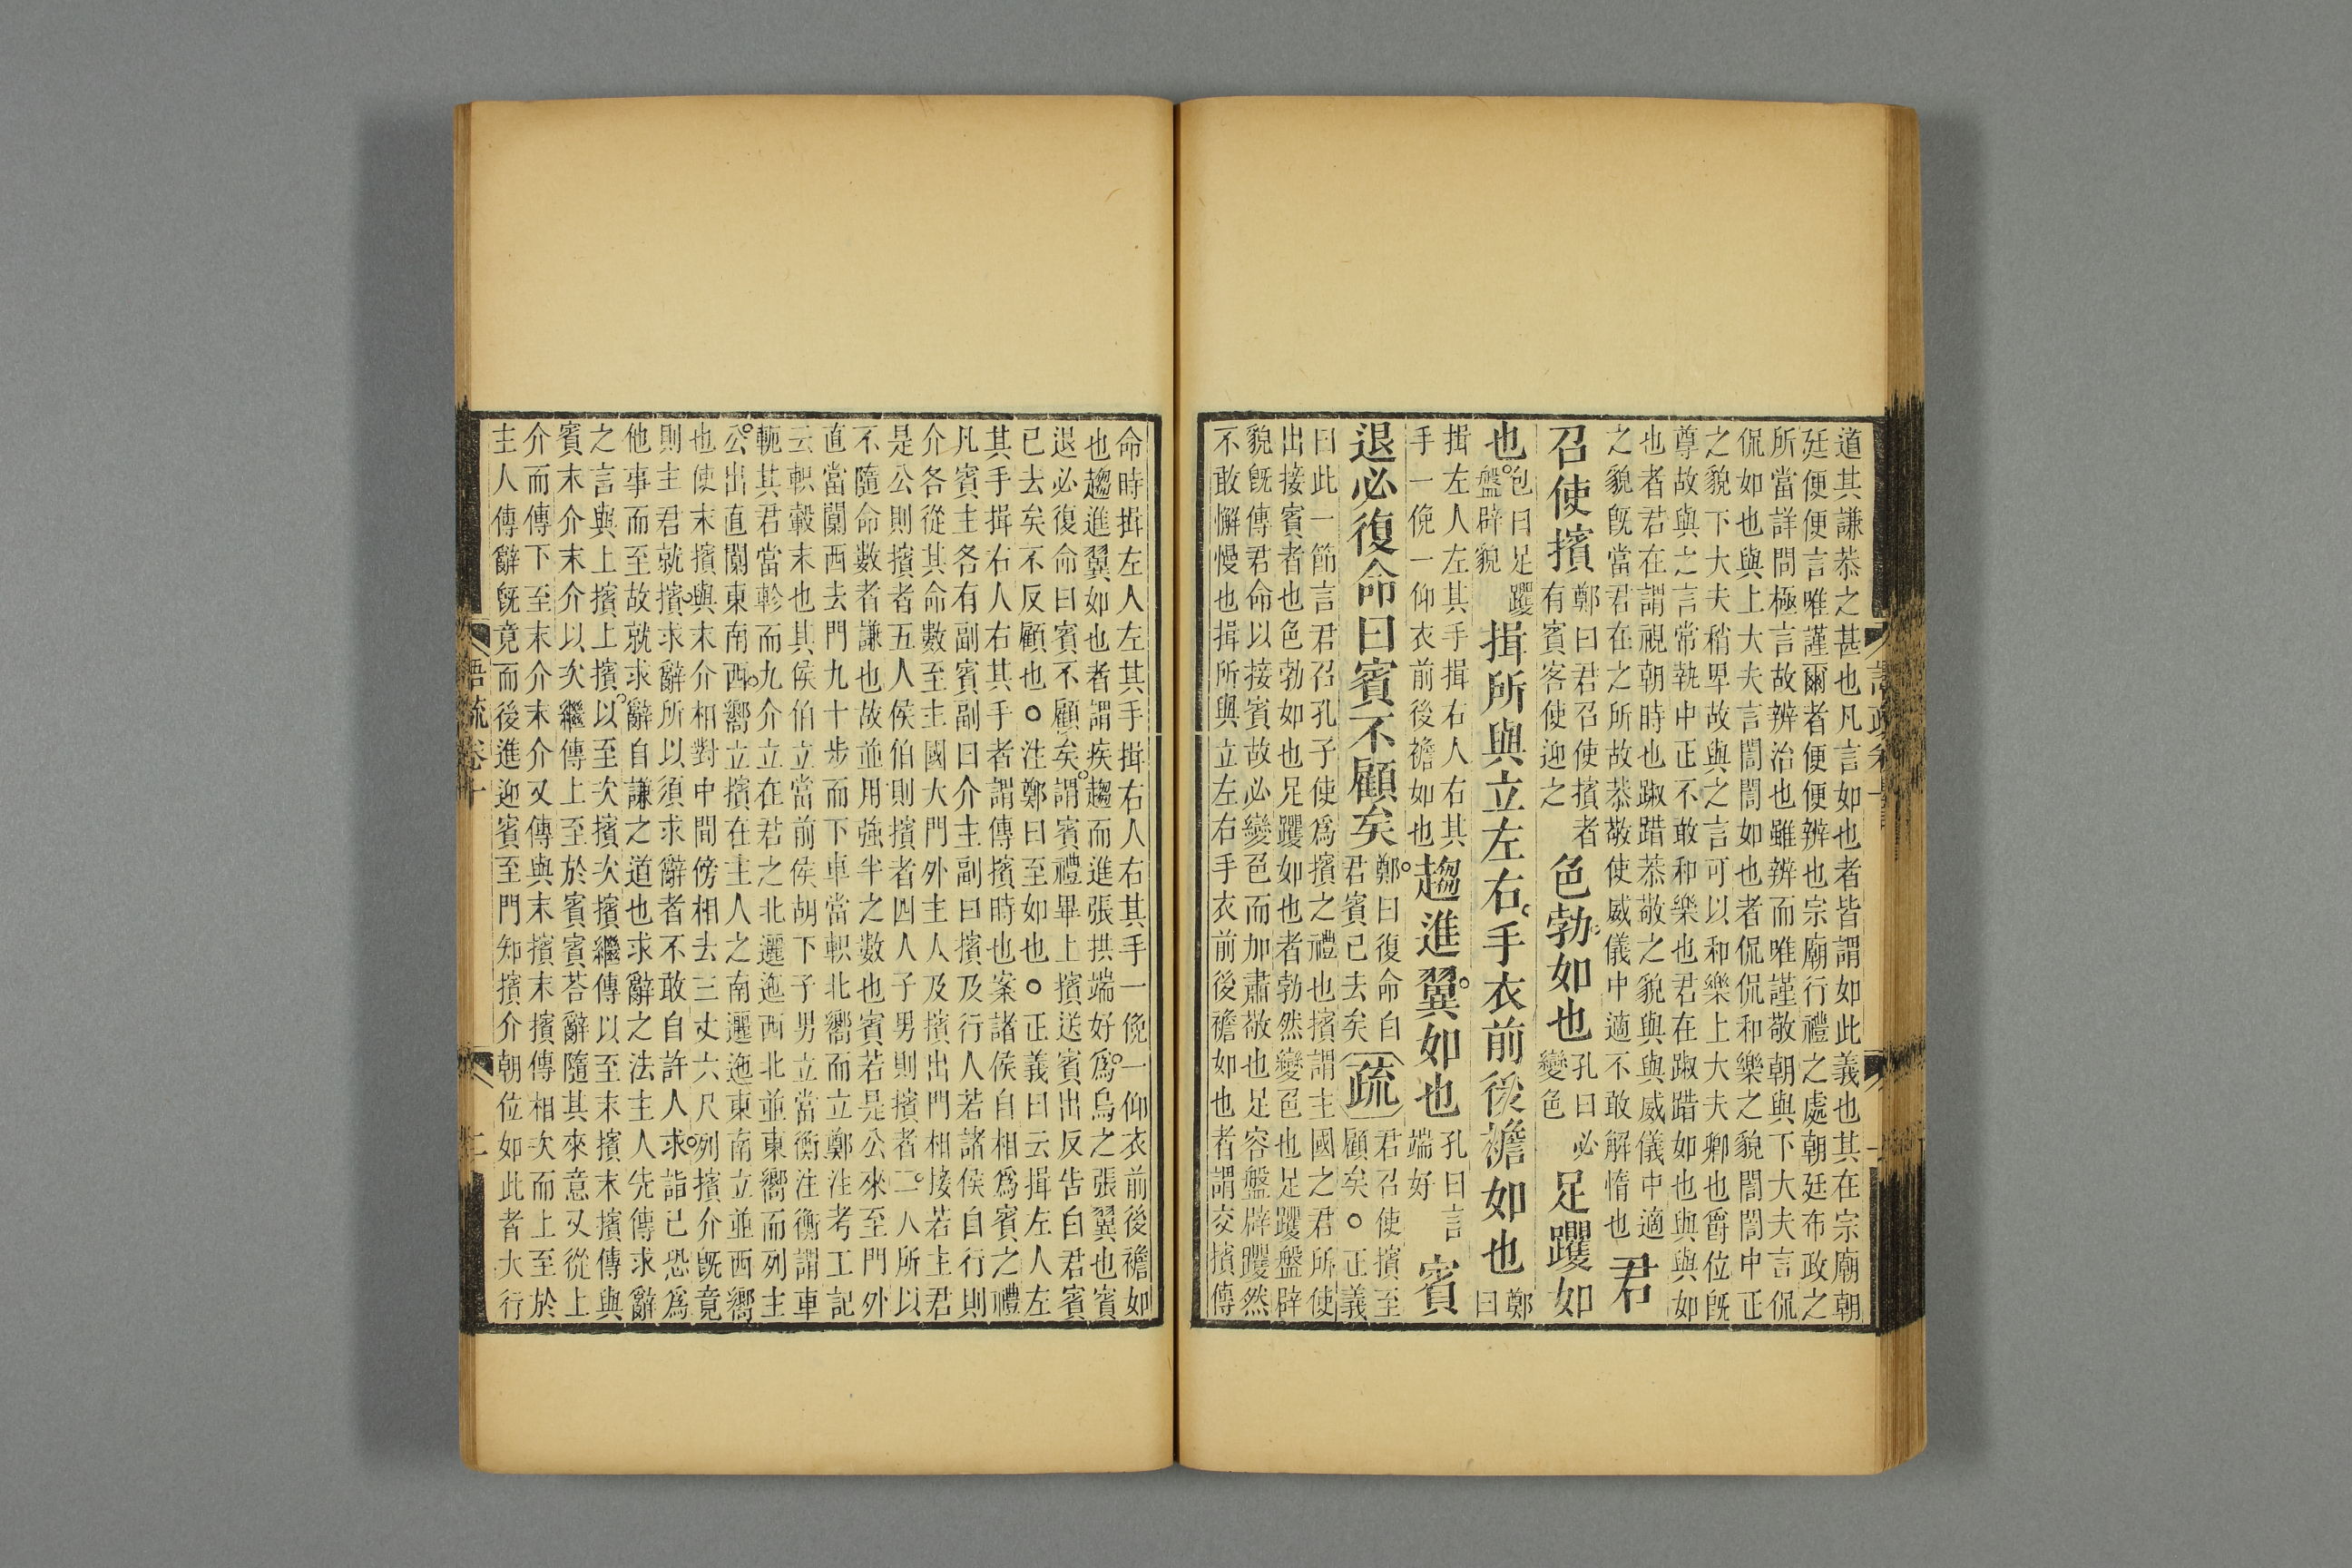 道其謙恭之甚也凡言如也者皆謂如此義也其在宗廟朝
廷便便言唯謹爾者便便辨也宗廟行禮之處朝廷布政之
所當詳問極言故辨治也雖辨而唯謹敬朝與下大夫言侃
侃如也與上大夫言誾誾如也者侃侃和樂之貌誾誾中正
之貌下大夫稍卑故與之言可以和樂上大夫卿也爵位旣
尊故與之言常執中正不敢和樂也君在踧踖如也與與如
也者君在謂視朝時也踧踖恭敬之貌與與威儀中適
之貌旣當君在之所故恭敬使威儀中適不敢解惰也 君
召使擯 鄭曰君召使擯者有賓客使迎之 色勃如也 孔曰必變色 足躩如
也 包曰足躩盤辟貌 揖所與立左右手衣前後襜如也 鄭曰
揖左人左其手揖右人右其手一俛一仰衣前後襜如也 趨進翼如也 孔曰言端好 賓
退必復命曰賓不顧矣 鄭曰復命白君賓已去矣 疏 君召使擯至顧矣○正義
曰此一節言君召孔子使爲擯之禮也擯謂主國之君所使
出接賓者也色勃如也足躩如也者勃然變色也足躩盤辟
貌旣傳君命以接賓故必變色而加肅敬也足容盤辟躩然
不敢懈慢也揖所與立左右手衣前後襜如也者謂交擯傳
命時揖左人左其手揖右人右其手一俛一仰衣前後襜如
也趨進翼如也者謂疾趨而進張拱端好爲烏之張翼也賓
退必復命曰賓不顧矣謂賓禮畢上擯送賓出反告白君賓
已去矣不反顧也○注鄭曰至如也○正義曰云揖左人左
其手揖右人右其手者謂傳擯時也案諸侯自相爲賓之禮
凡賓主各有副賓副曰介主副曰擯及行人若諸侯自行則
介各從其命數至主國大門外主人及擯出門相接若主君
是公則擯者五人侯伯則擯者四人子男則擯者二人所以
不隨命數者謙也故並用強半之數也賓若是公來至門外
直當闑西去門九十步而下車當軹北嚮而立鄭注考工記
云軹轂末也其侯伯立當前侯胡下子男立當衡注衡謂車
軛其君當軫而九介立在君之北邐迤西北並東嚮而列主
公出直闑東南西嚮立擯在主人之南邐迤東南立並西嚮
也使末擯與末介相對中間傍相去三丈六尺列擯介旣竟
則主君就擯求辭所以須求辭者不敢自許人求詣己恐爲
他事而至故就求辭自謙之道也求辭之法主人先傳求辭
之言與上擯上擯以至次擯次擯繼傳以至末擯末擯傳與
賓末介末介以次繼傳上至於賓賓荅辭隨其來意又從上
介而傳下至末介末介又傳與末擯末擯傳相次而上至於
主人傳辭旣竟而後進迎賓至門知擯介朝位如此者大行
語疏卷十
二